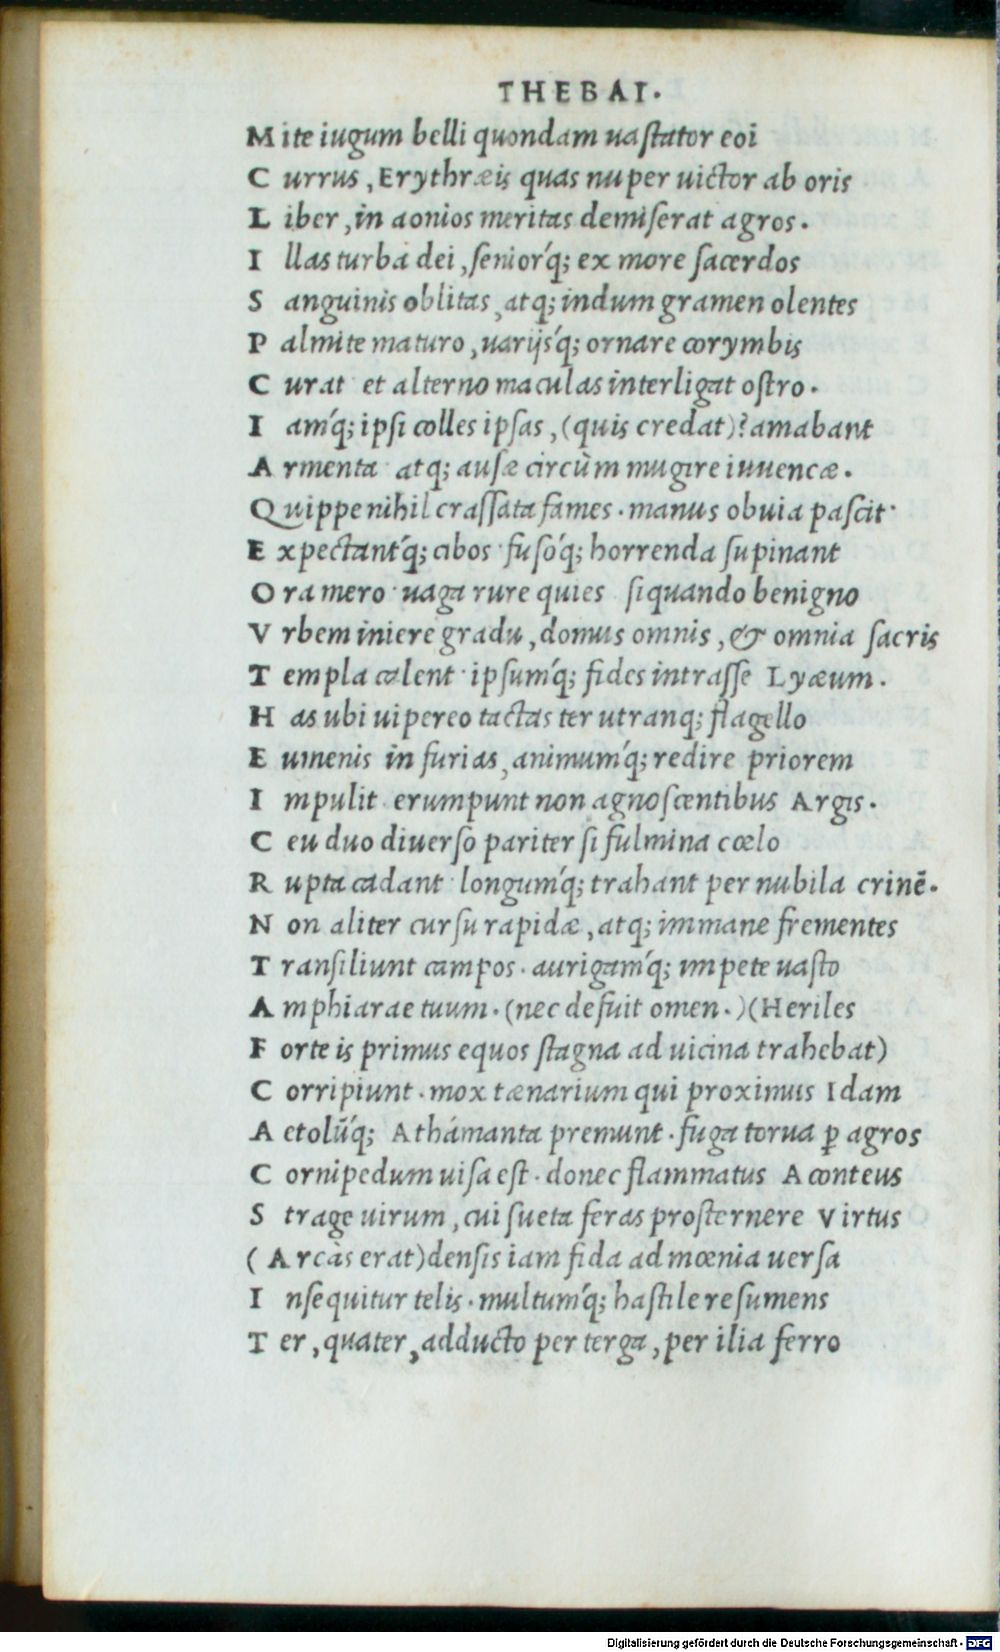 THEBAI.
M ite iugum belli quondam uastator eoi
C urrus, Erythræis quas nuper uictor ab oris
L iber, in aonios meritas demiserat agros.
I llas turba dei, senior'q; ex more sacerdos
S anguinis oblitas, atq; indum gramen olentes
P almite maturo, uarijs'q; ornare corymbis
C urat· et alterno maculas interligat ostro.
I am'q; ipsi colles ipsas, (quis credat)? amabant
A rmenta· atq; ausæ circùm mugire iuuencæ.
Q uippe nihil crassata fames. manus obuia pascit·
E xpectant'q; cibos· fuso'q; horrenda supinant
O ra mero· uaga rure quies si quando benigno
V rbem iniere gradu, domus omnis, & omnia sacris
T empla calent· ipsum'q; fides intrasse Lyæum.
H as ubi uipereo tactas ter utranq; flagello
E umenis in furias, animum'q; redire priorem
I mpulit· erumpunt non agnoscentibus Argis.
C eu duo diuerso pariter si fulmina cœlo
R upta cadant· longum'q; trahant per nubila crinē.
N on aliter cursu rapidæ, atq; immane frementes
T ransiliunt campos. aurigam'q; impete uasto
A mphiarae tuum. (nec defuit omen.) (Heriles
F orte is primus equos stagna ad uicina trahebat)
C orripiunt. mox tænarium qui proximus Idam
A etolū'q; Athámanta premunt. fuga torua ꝑ agros
C ornipedum uisa est. donec flammatus Aconteus
S trage uirum, cui sueta feras prosternere Virtus
(Arcàs erat) densis iam fida ad mœnia uersa
I nsequitur telis. multum'q; hastile resumens
T er, quater, adducto per terga, per ilia ferro
Digitalisierung gefördert durch die Deutsche Forschungsgemeinschaft - DFG